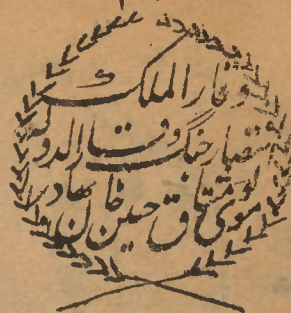 وقار الملک
انتصار جنگ وقار الدولہ
مولوی مشتاق حسین خان بہادر